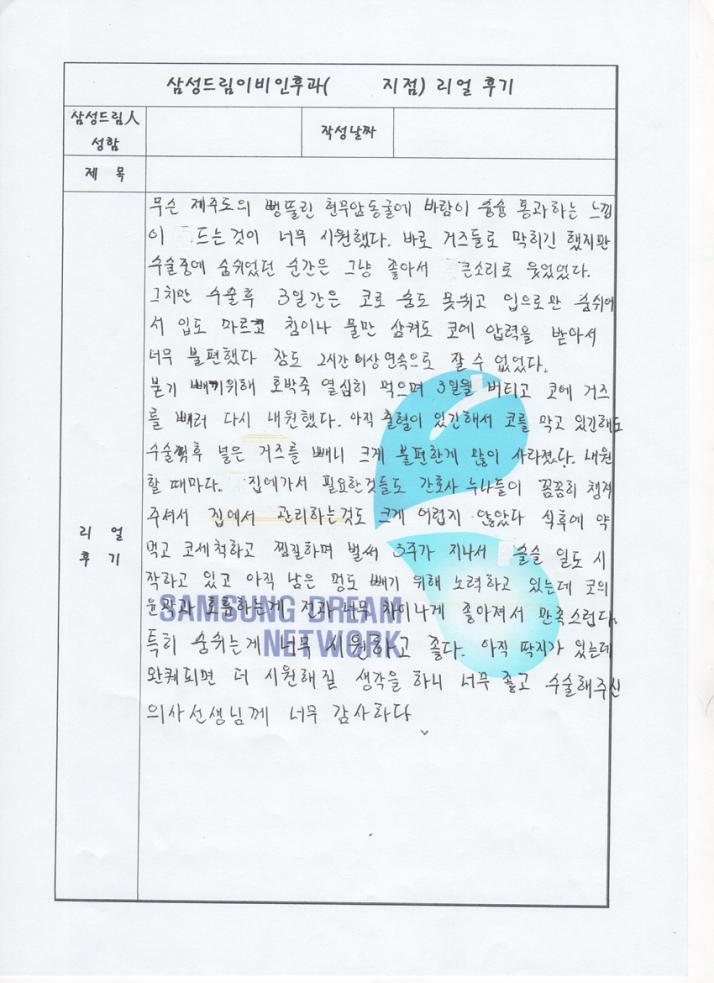 삼성드림이비인후과( 지점) 리얼 후기
삼성드림人
성함
작성날짜
제 목
리 얼
후 기
무슨 제주도의 뻥뚤린 현무암동굴에 바람이 슝슝 통과하는 느낌
이 드는것이 너무 시원했다. 바로 거즈들로 막히긴 했지만
수술중에 숨쉬었던 순간은 그냥 좋아서 큰소리로 웃었었다.
그치만 수술후 3일간은 코로 숨도 못쉬고 입으로만 숨쉬어
서 입도 마르고 침이나 물만 삼켜도 코에 압력을 받아서
너무 불편했다 잠도 2시간이상 연속으로 잘 수 없었다.
붇기 빼기위해 호박죽 열심히 먹으며 3일을 버티고 코에 거즈
를 빼러 다시 내원했다. 아직 출혈이 있긴해서 코를 막고 있긴해도
수술직후 넣은 거즈를 빼니 크게 불편한게 많이 사라졌다. 내원
할 때마다. 집에가서 필요한것들도 간호사 누나들이 꼼꼼히 챙겨
주셔서 집에서 관리하는것도 크게 어렵지 않았다 식후에 약
먹고 코세척하고 찜질하며 벌써 3주가 지나서 슬슬 일도 시
작하고 있고 아직 남은 멍도 빼기 위해 노력하고 있는데 코의
윤곽과 호흡하는게 전과 너무 차이나게 좋아져서 만족스럽다.
특히 숨쉬는게 너무 시원하고 좋다. 아직 딱지가 있는데
완쾌되면 더 시원해질 생각을 하니 너무 좋고 수술해주신
의사선생님께 너무 감사하다
SAMSUNG DREAM
NETWORK